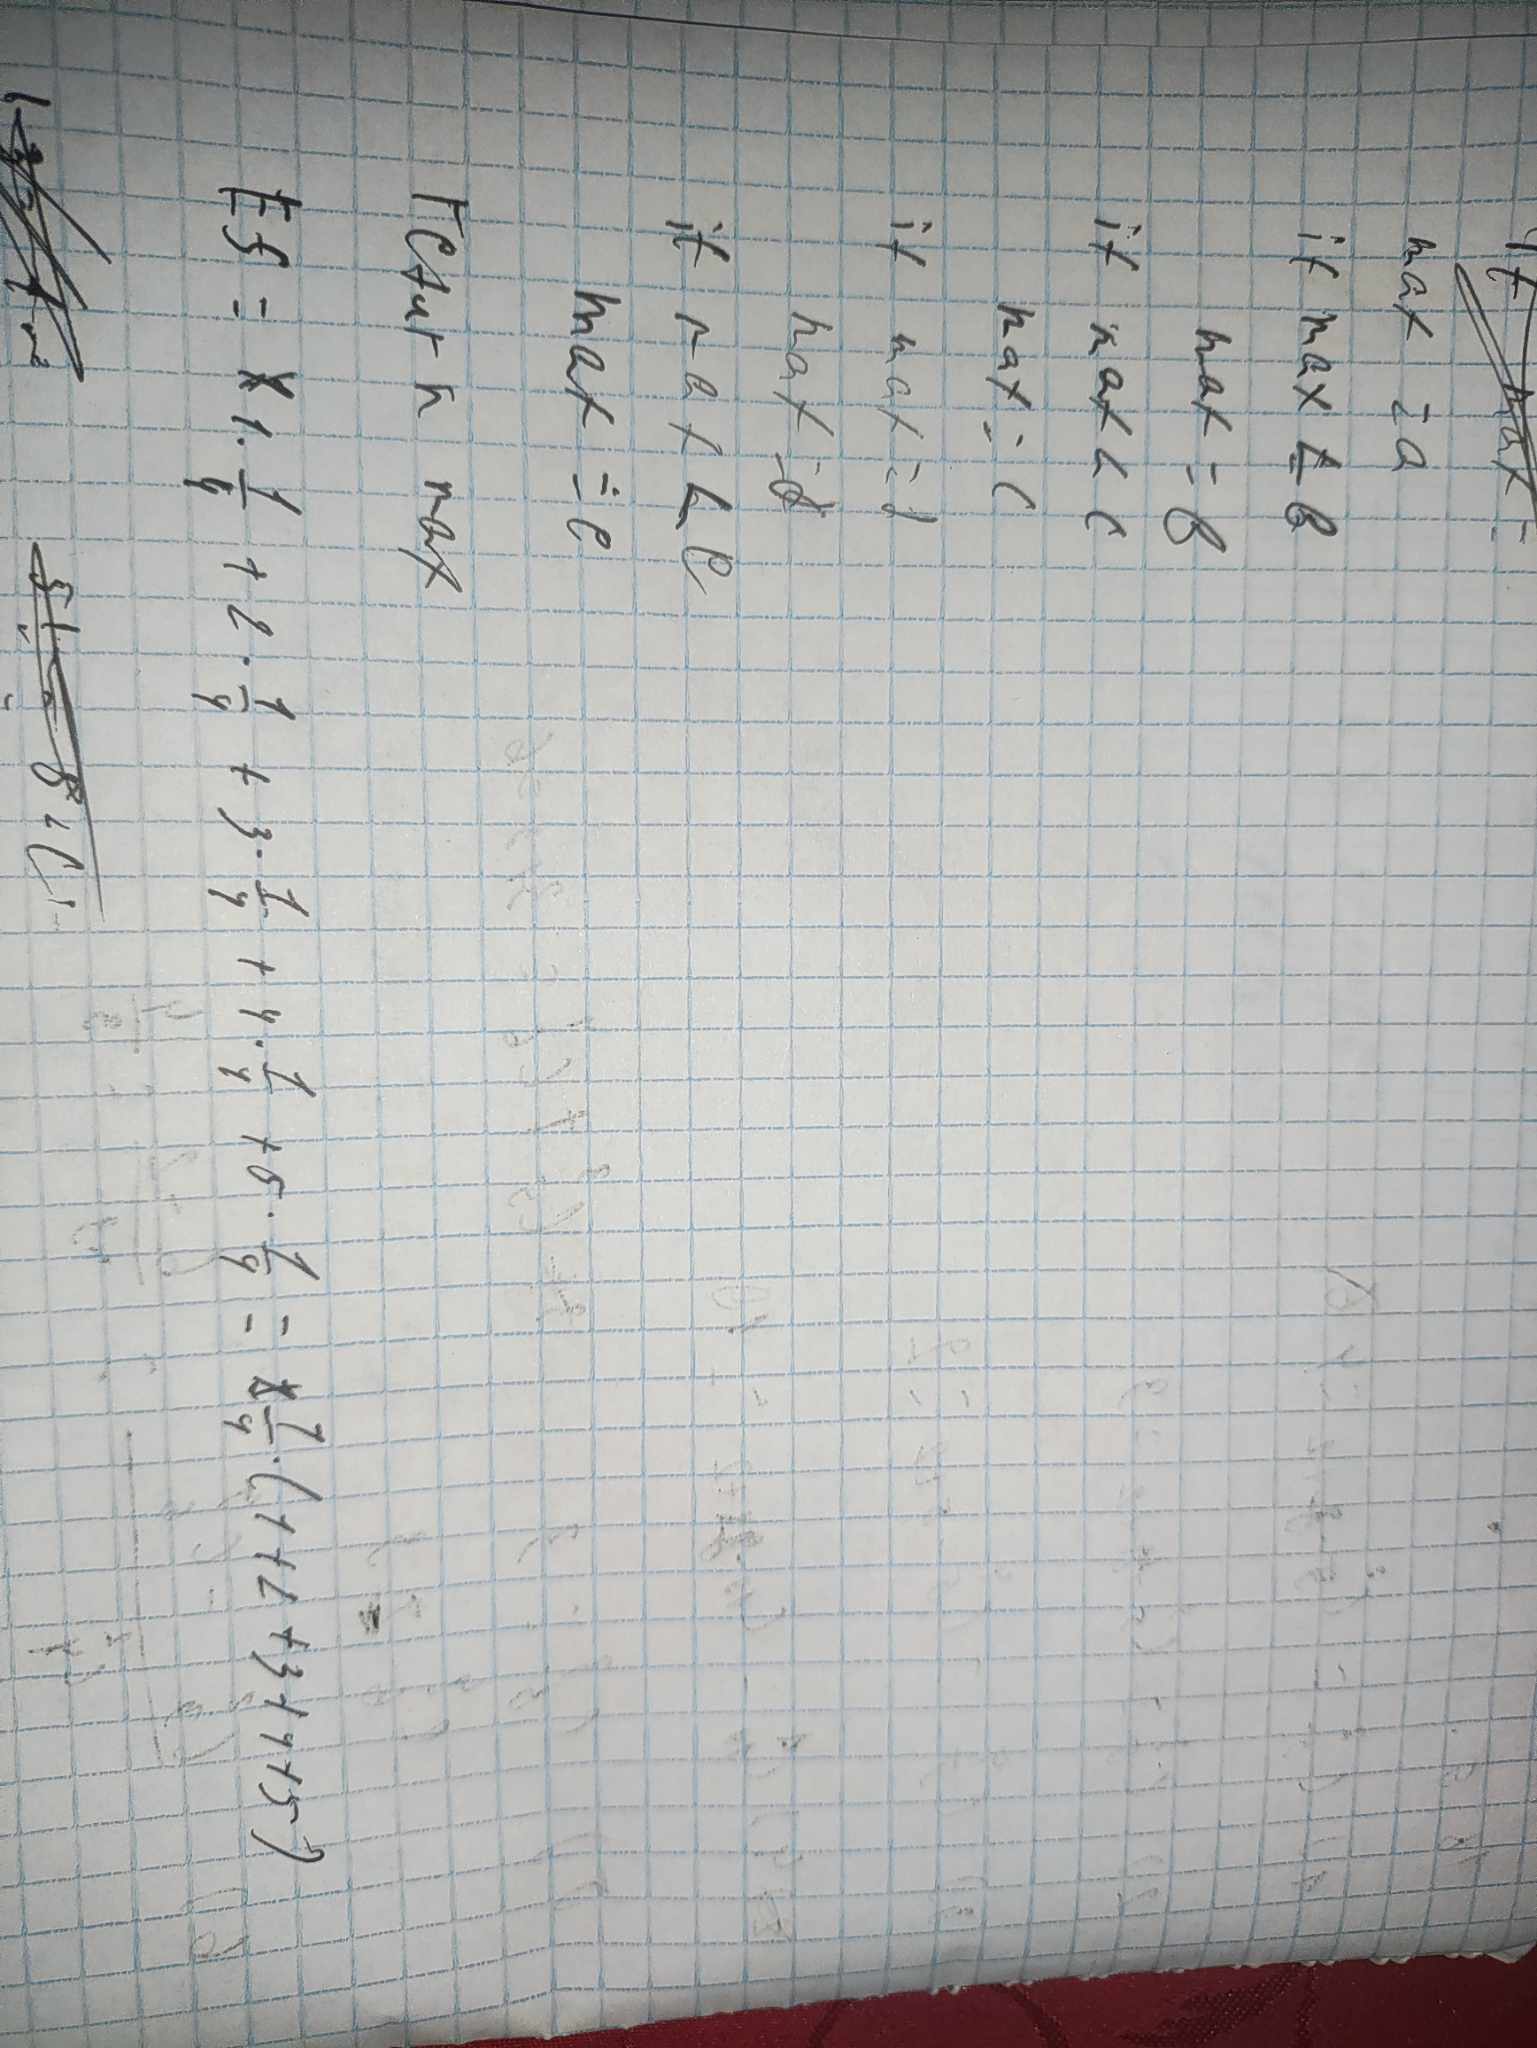 max = a
if max < b
max = b
if max < c
max = c
if max = d
max = d
if max < e
max = e
return max
Eξ = 1 · 1/4 + 2 · 1/4 + 3 · 1/4 + 4 · 1/4 + 5 · 1/4 = 1/4 · (1+2+3+4+5)